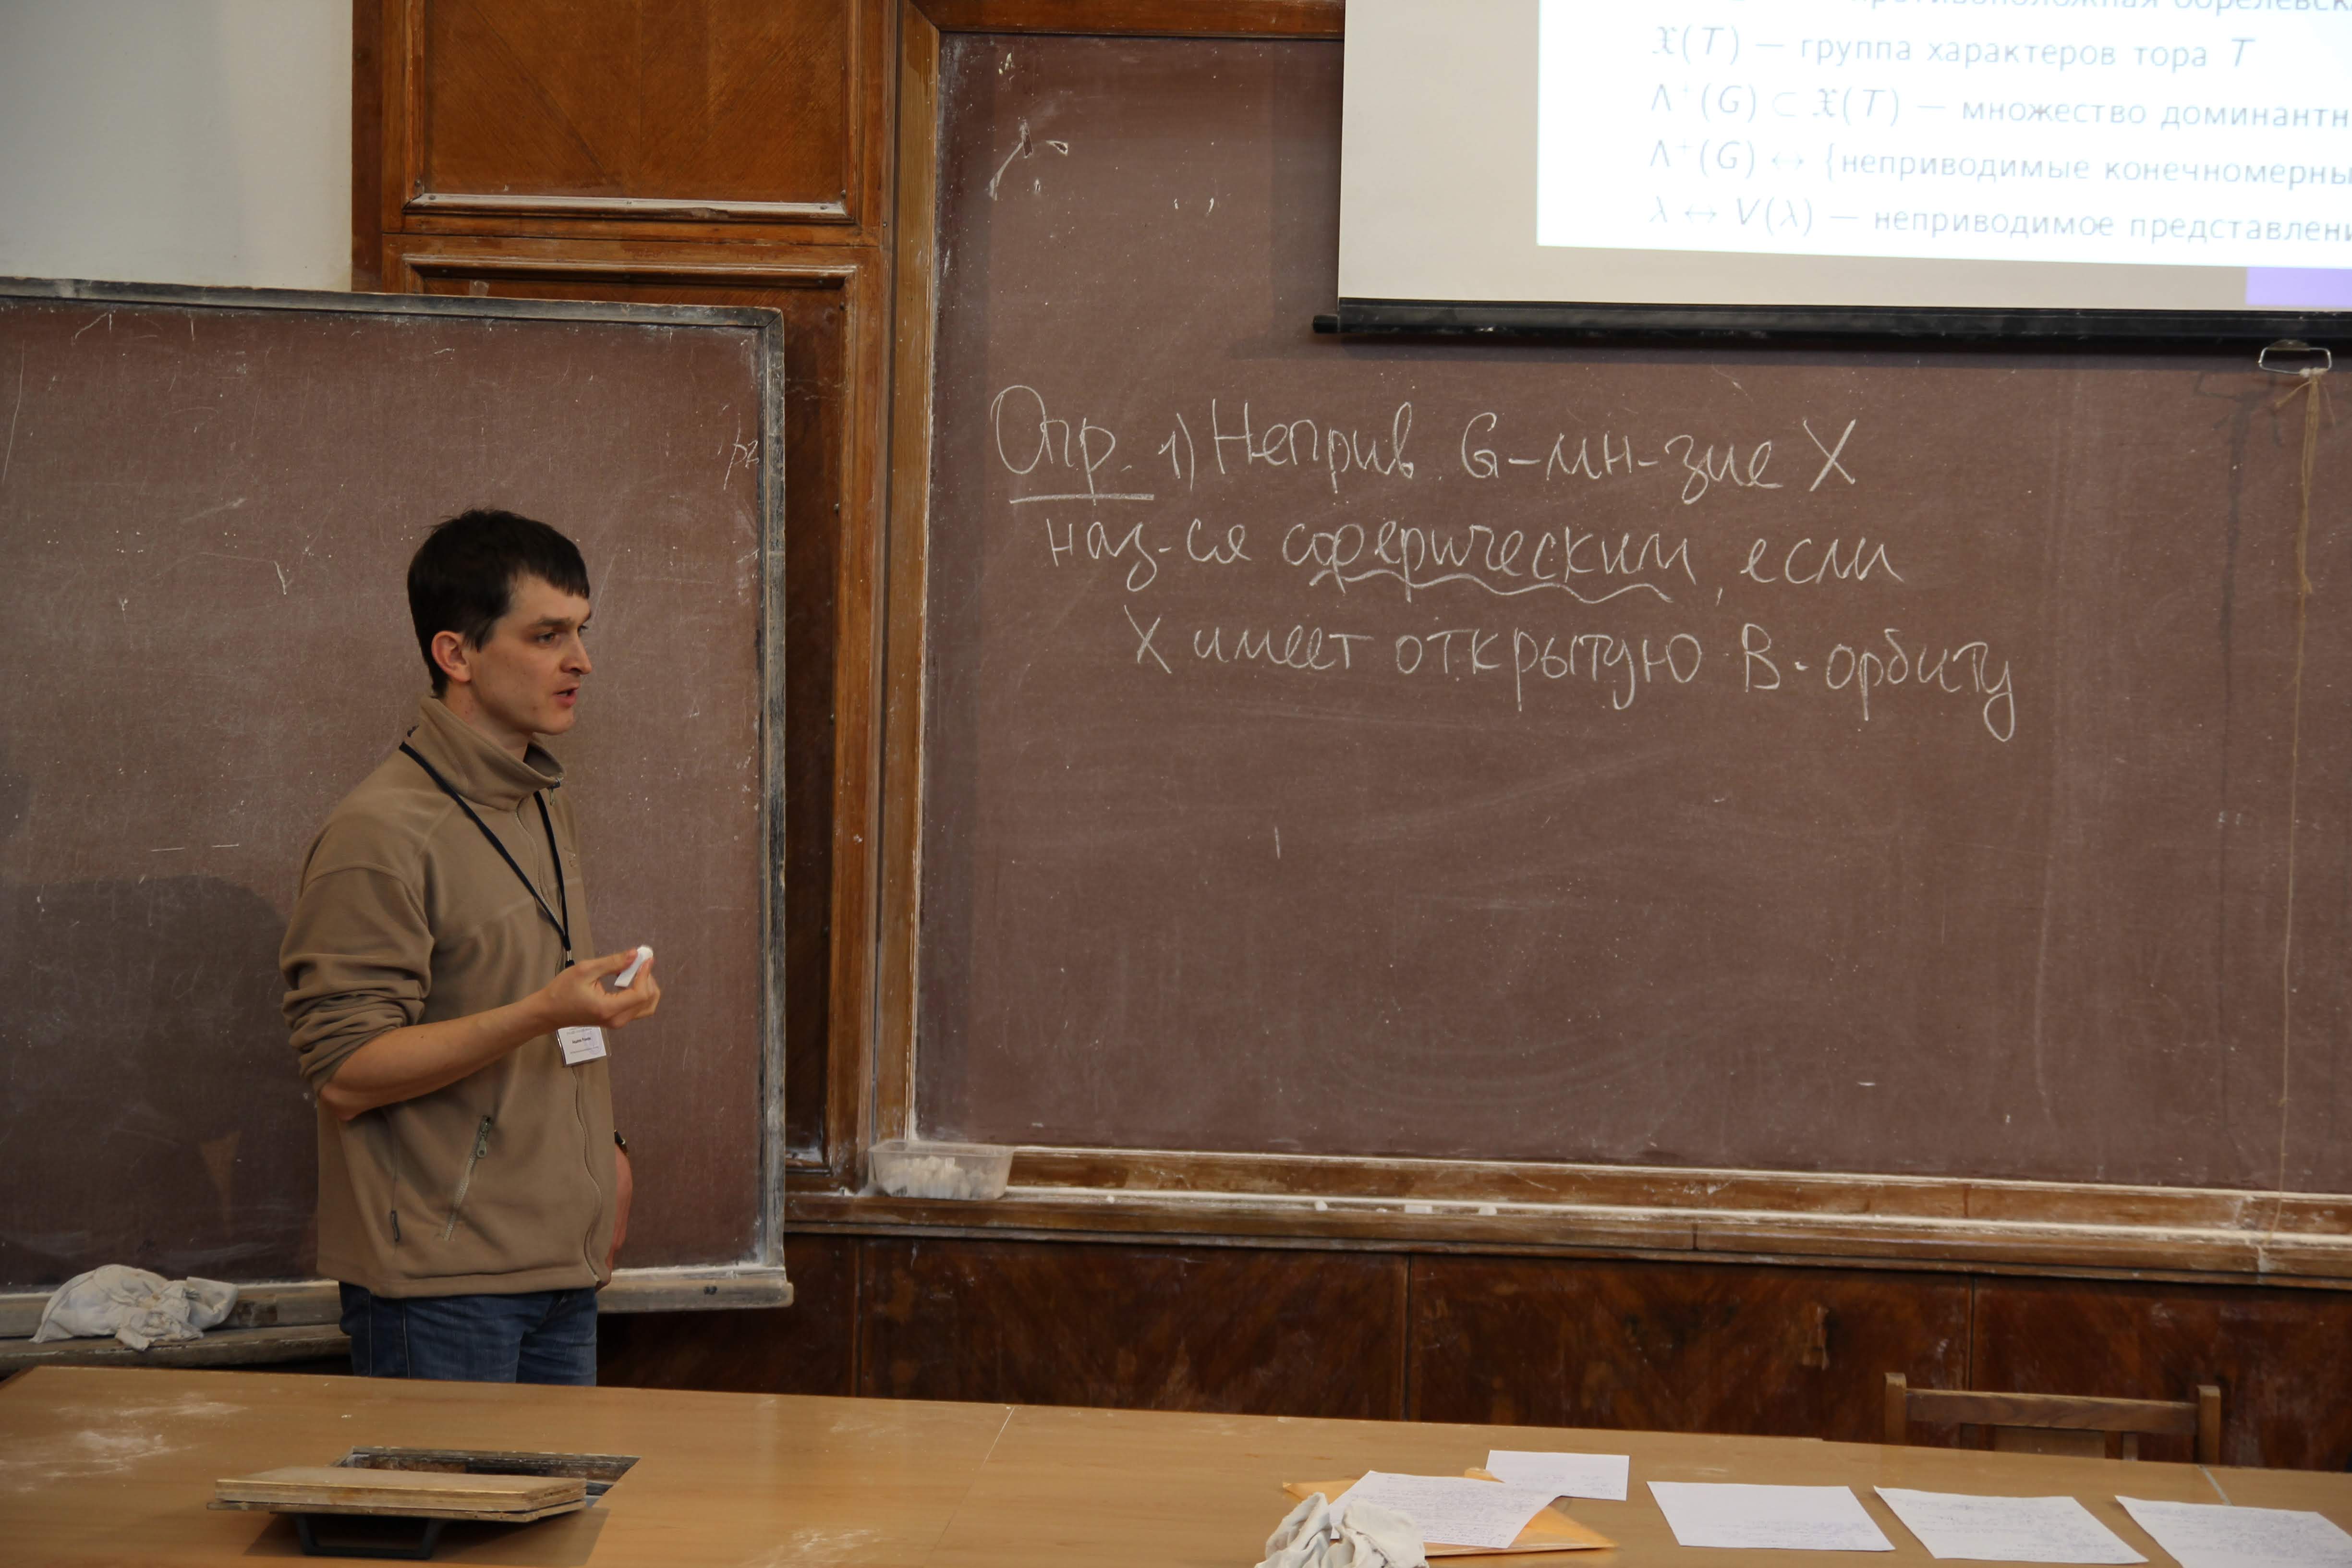 𝔛(T) — группа характеров тора T
Λ⁺(G) ⊂ 𝔛(T) — множество доминантн
Λ⁺(G) ↔ {неприводимые конечномерны
λ ↔ V(λ) — неприводимое представлени
Опр. 1) Неприв. G-мн-зие X
наз-ся сферическим, если
X имеет открытую B-орбиту